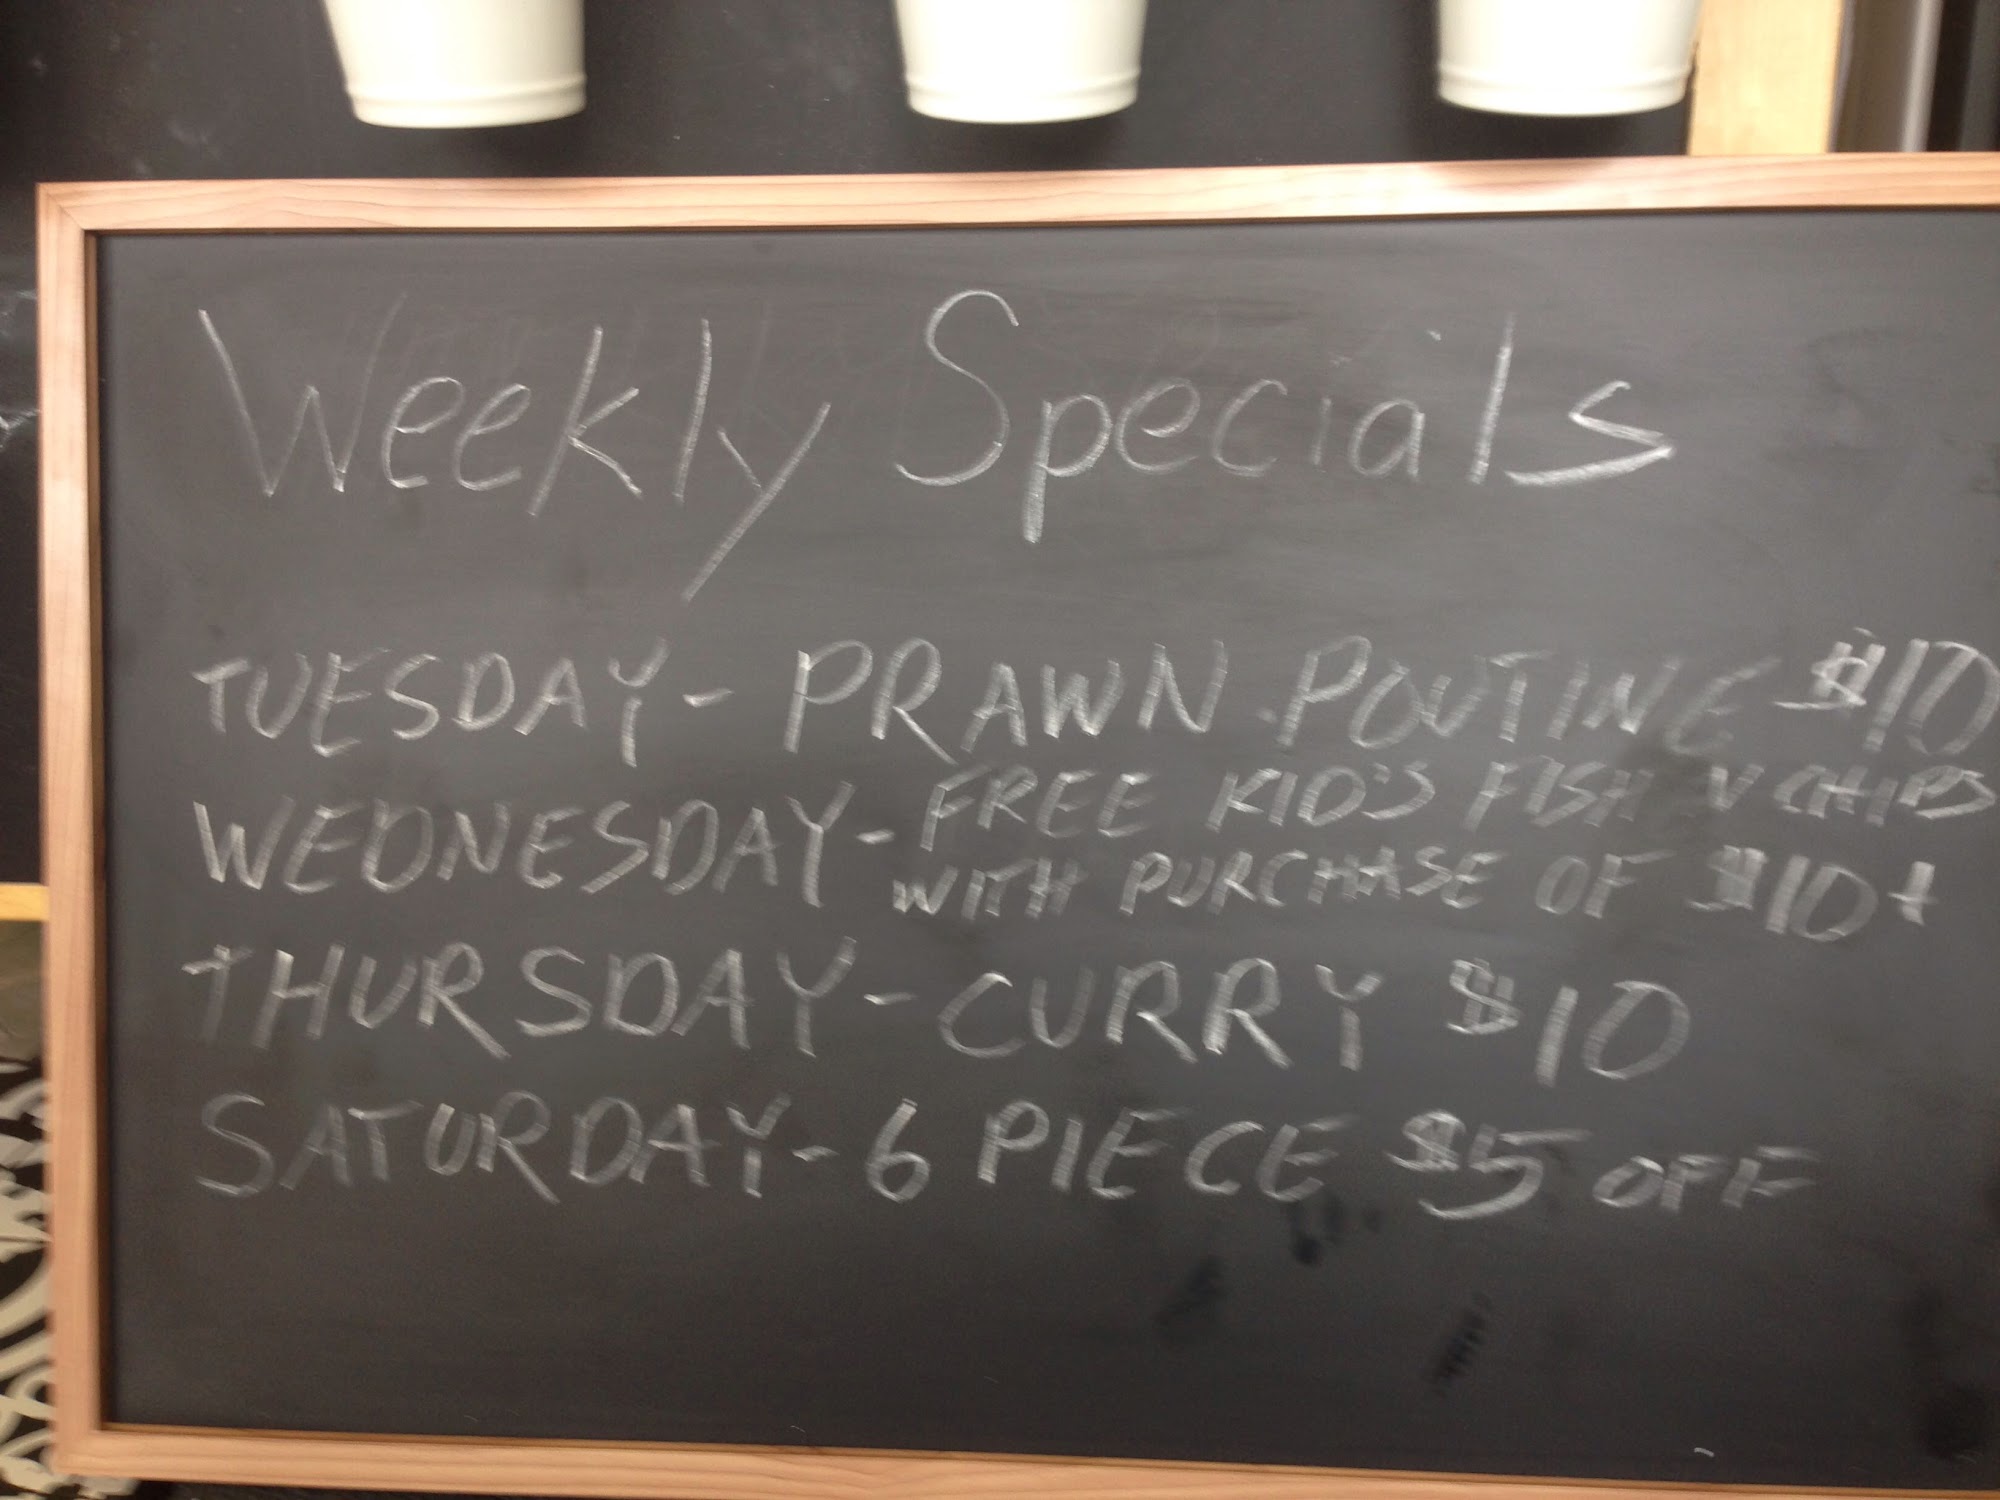 Weekly Specials
TUESDAY - PRAWN POUTINE $10
WEDNESDAY - FREE KID'S FISH N CHIPS
WITH PURCHASE OF $10+
THURSDAY - CURRY $10
SATURDAY - 6 PIECE $5 OFF